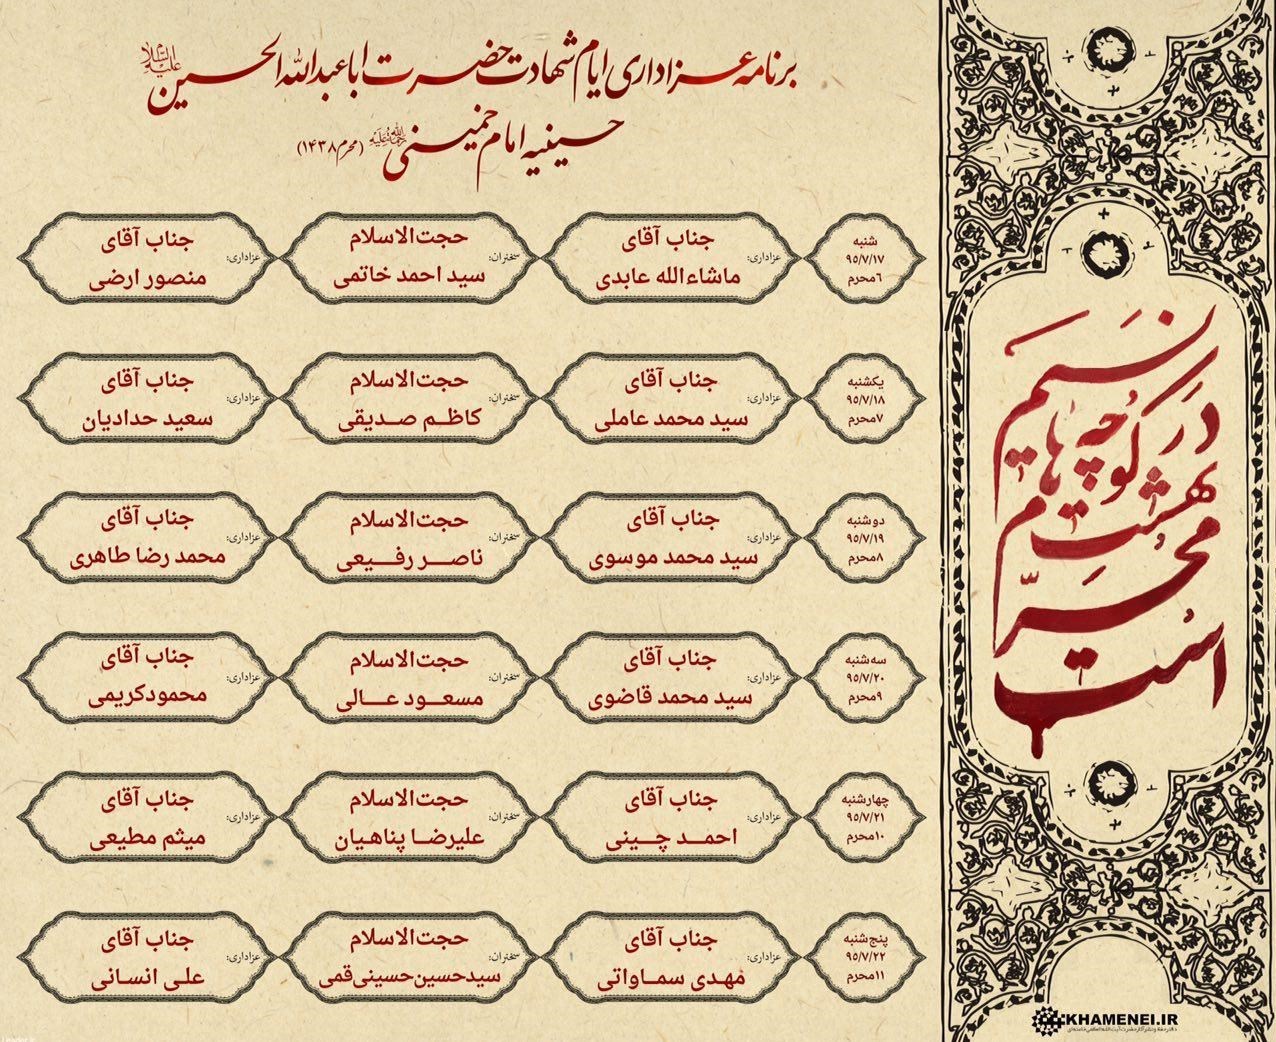 برنامه عزاداری ایام شهادت حضرت اباعبدالله الحسین علیه‌السلام
حسینیه امام خمینی رحمةالله‌علیه (محرم ۱۴۳۸)
شنبه
۹۵/۷/۱۷
۶محرم
عزاداری:
جناب آقای
ماشاءالله عابدی
سخنران:
حجت‌الاسلام
سید احمد خاتمی
عزاداری:
جناب آقای
منصور ارضی
یکشنبه
۹۵/۷/۱۸
۷محرم
عزاداری:
جناب آقای
سید محمد عاملی
سخنران:
حجت‌الاسلام
کاظم صدیقی
عزاداری:
جناب آقای
سعید حدادیان
دوشنبه
۹۵/۷/۱۹
۸محرم
عزاداری:
جناب آقای
سید محمد موسوی
سخنران:
حجت‌الاسلام
ناصر رفیعی
عزاداری:
جناب آقای
محمد رضا طاهری
سه‌شنبه
۹۵/۷/۲۰
۹محرم
عزاداری:
جناب آقای
سید محمد قاضوی
سخنران:
حجت‌الاسلام
مسعود عالی
عزاداری:
جناب آقای
محمودکریمی
چهارشنبه
۹۵/۷/۲۱
۱۰محرم
عزاداری:
جناب آقای
احمد چینی
سخنران:
حجت‌الاسلام
علیرضا پناهیان
عزاداری:
جناب آقای
میثم مطیعی
پنج‌شنبه
۹۵/۷/۲۲
۱۱محرم
عزاداری:
جناب آقای
مهدی سماواتی
سخنران:
حجت‌الاسلام
سیدحسین‌حسینی‌قمی
عزاداری:
جناب آقای
علی انسانی
نسیم
در کوچه‌هایم
بهشت
محرّم
است
KHAMENEI.IR
دفتر حفظ و نشر آثار حضرت آیت‌الله‌العظمی خامنه‌ای